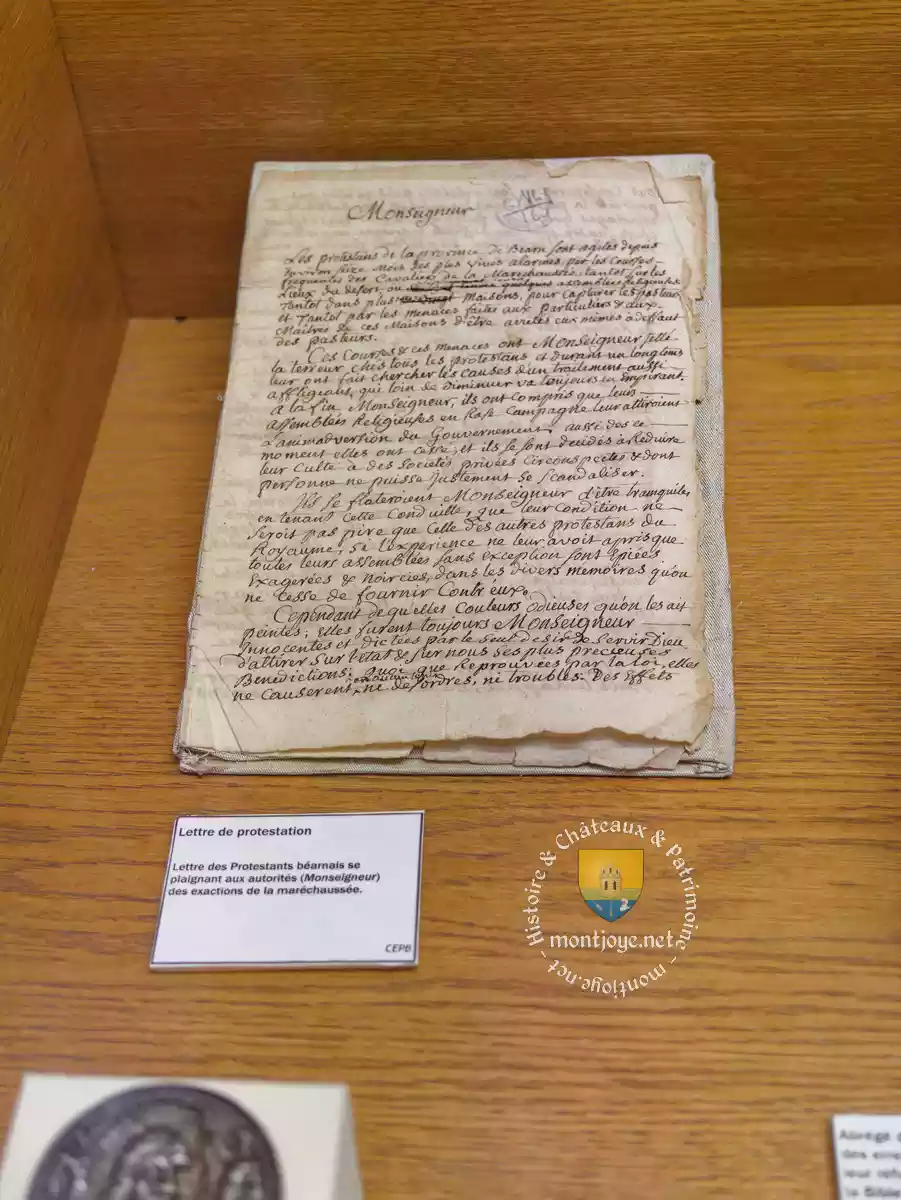 Monseigneur
Les protestans de la province de Bearn sont agités depuis
environ seize mois des plus vives alarmes par les Courses
frequentes des Cavaliers de la Marechaussée, tantot sur les
Lieux du desert, ou quelques assemblées Religieuses
Tantot dans plus maisons, pour capturer les pasteurs
et Tantot par les menaces faites aux particuliers & aux
Maitres de ces Maisons d'être arretés eux mêmes a deffaut
des pasteurs.
Ces Courses & ces menaces ont Monseigneur jetté
la terreur chés tous les protestans et durant un long tems
leur ont fait chercher les causes d'un traitement aussi
affligeant, qui loin de diminuer va toujours en empirant.
a la fin Monseigneur, ils ont Compris que leurs
assemblées Religieuses en Rase Campagne leur attiroient
L'animadversion du Gouvernement, aussi des ce
moment elles ont cessé, et ils se sont decidés à Reduire
leur Culte a des Societés privées Circonspectes & dont
personne ne puisse justement se Scandaliser.
Ils se flateroient Monseigneur d'être tranquiles
en tenant Cette Conduitte, que leur Condition ne
seroit pas pire que Celle des autres protestans du
Royaume, Si l'experience ne leur avoit apris que
toutes leurs assemblées sans exception sont Epiées
Exagerées & Noircies, dans les divers memoires qu'on
ne Cesse de fournir Contr'eux.
Cependant de quelles Couleurs odieuses qu'on les ait
peintes; elles furent toujours Monseigneur
Innocentes et dictées par le Seul desir de Servir Dieu
d'attirer Sur l'etat & Sur nous Ses plus precieuses
Benedictions; Quoi que Reprouvées par la loi, elles
ne Causerent ni desordres, ni troubles. Des Effets
Lettre de protestation
Lettre des Protestants béarnais se
plaignant aux autorités (Monseigneur)
des exactions de la maréchaussée.
CEPB
Histoire & Châteaux & Patrimoine
montjoye.net
montjoye.net
Abrégé
des
leur
la Bible